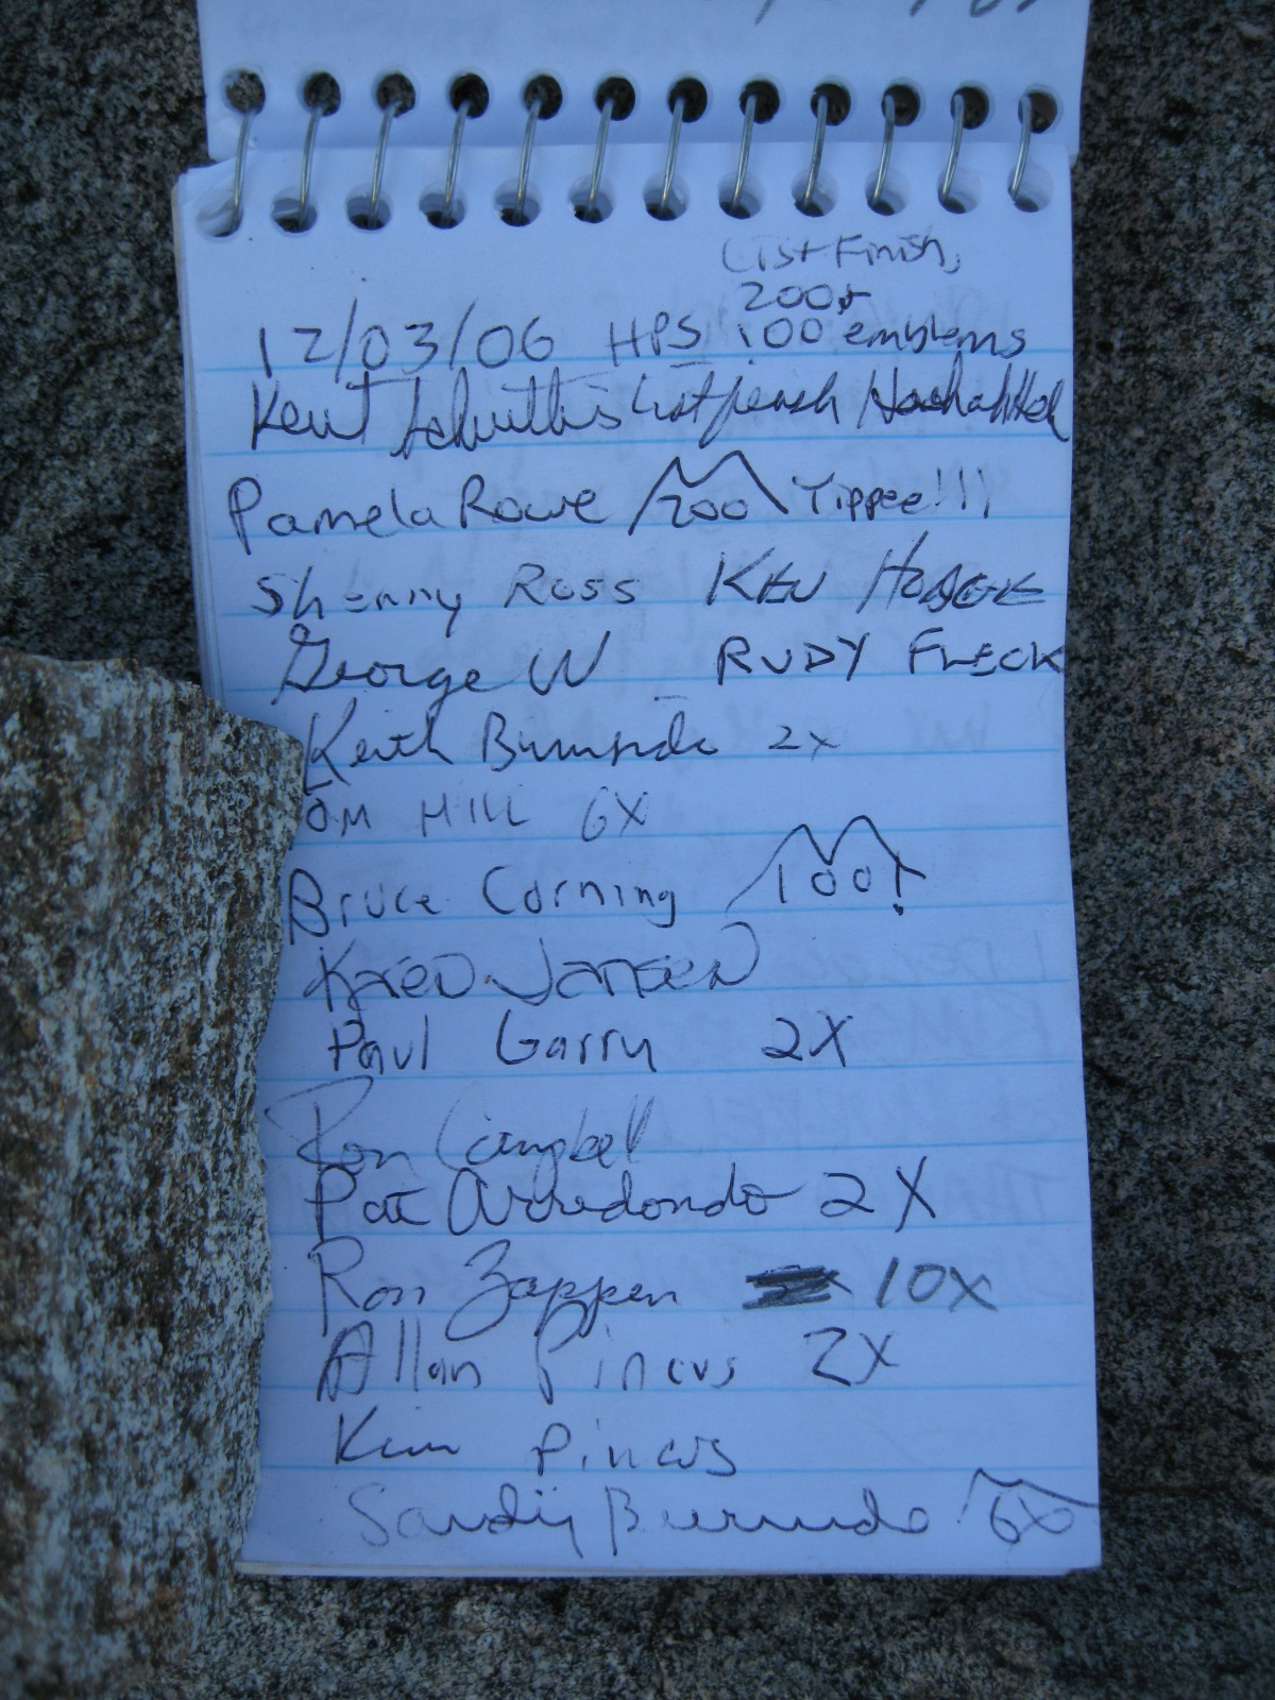 List Finish,
200 +
12/03/06 HPS 100 emblems
Kent List finish
Pamela Rowe 200 Yippee!!!
Sherry Ross KEN HODGE
George W RUDY FLECK
Keith 2x
TOM HILL 6X
Bruce Corning 100!
Paul Garry 2X
Ron Campbell
Pat Arredondo 2X
Ron Zappen 10X
Allan Pincus 2X
Kim Pincus
Sandy 6X